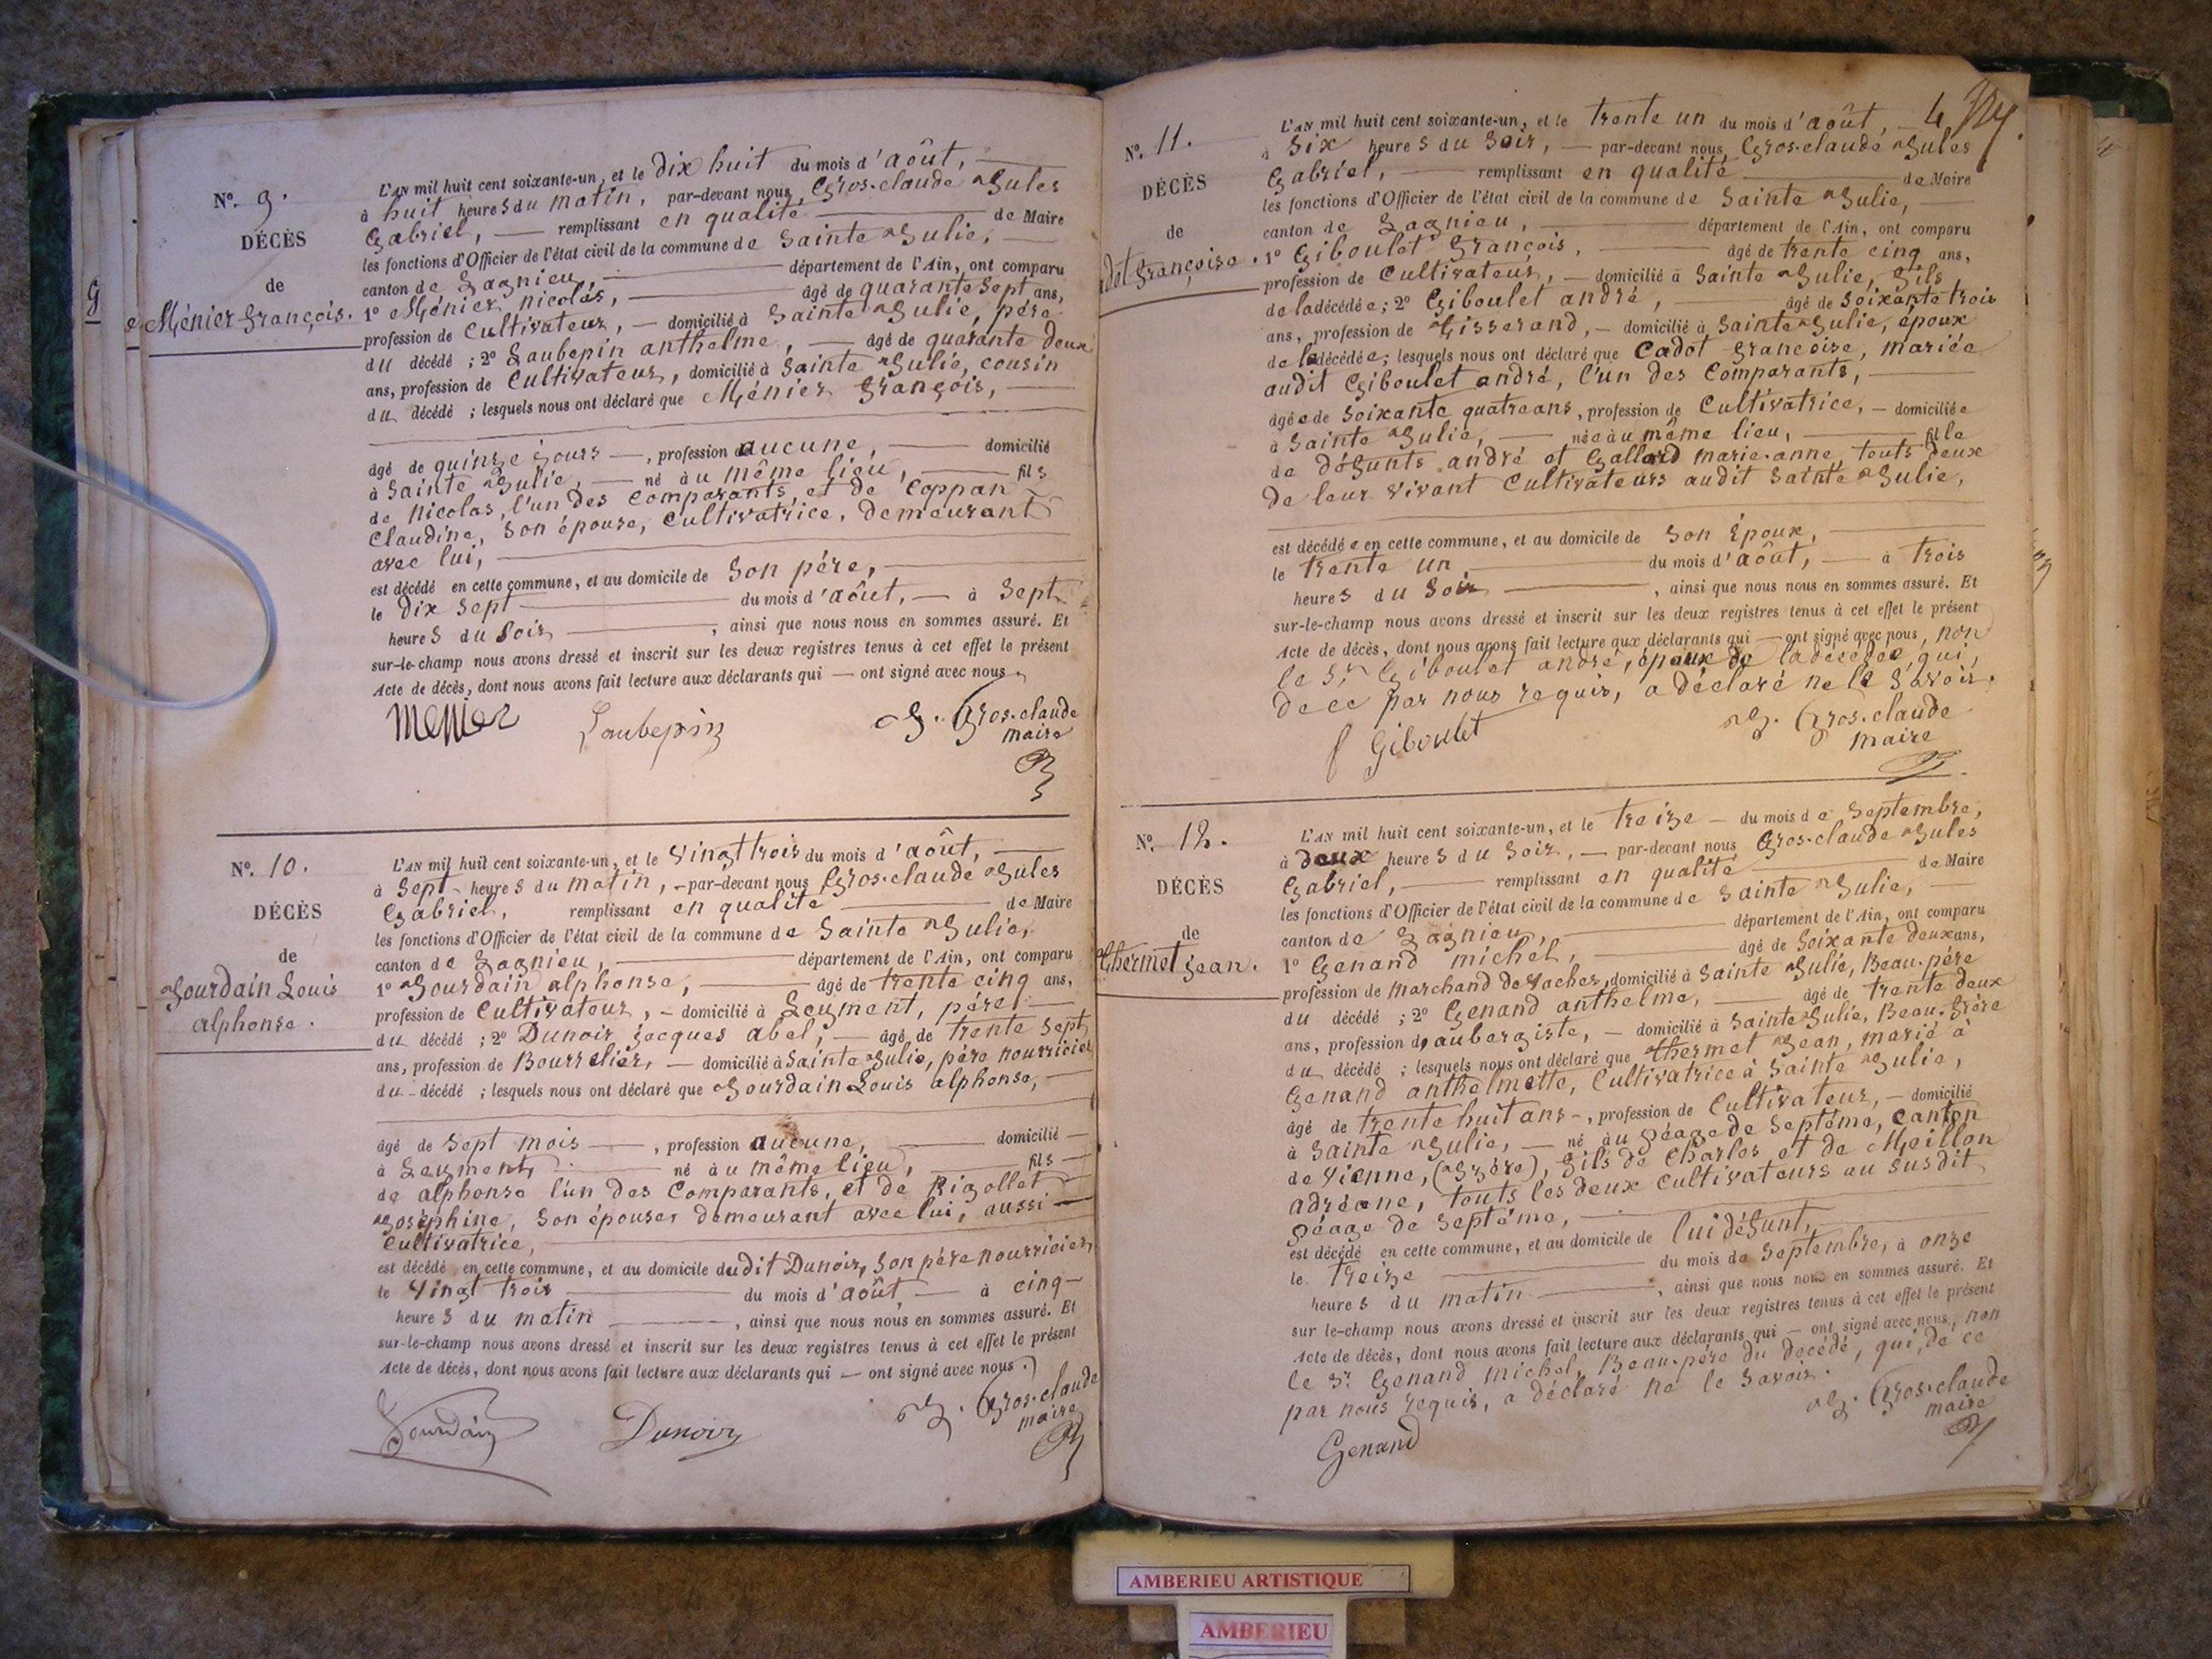 N°. 9.
DÉCÈS
de
Ménier françois.
L'AN mil huit cent soixante-un, et le dix huit du mois d'août,
à huit heures du matin, par-devant nous, Gros-claude Jules
Gabriel, remplissant en qualité de Maire
les fonctions d'Officier de l'état civil de la commune de Sainte Julie,
canton de Lagnieu, département de l'Ain, ont comparu
1° Ménier nicolas, âgé de quarante sept ans,
profession de Cultivateur, domicilié à Sainte Julie, père
du décédé ; 2° Laubepin anthelme, âgé de quarante deux
ans, profession de Cultivateur, domicilié à Sainte Julie, cousin
du décédé ; lesquels nous ont déclaré que Ménier françois,
âgé de quinze jours, profession aucune, domicilié
à Sainte Julie, né au même lieu, fils
de nicolas, l'un des Comparants, et de Coppan
Claudine, son épouse, Cultivatrice, demeurant
avec lui,
est décédé en cette commune, et au domicile de son père,
le dix sept du mois d'août, à sept
heures du soir, ainsi que nous nous en sommes assuré. Et
sur-le-champ nous avons dressé et inscrit sur les deux registres tenus à cet effet le présent
Acte de décès, dont nous avons fait lecture aux déclarants qui — ont signé avec nous.
Menier Laubepin J. Gros-claude
maire
N°. 10.
DÉCÈS
de
Jourdain Louis
alphonse.
L'AN mil huit cent soixante-un, et le vingt trois du mois d'août,
à sept heures du matin, par-devant nous Gros-claude Jules
Gabriel, remplissant en qualité de Maire
les fonctions d'Officier de l'état civil de la commune de Sainte Julie,
canton de Lagnieu, département de l'Ain, ont comparu
1° Jourdain alphonse, âgé de trente cinq ans,
profession de Cultivateur, domicilié à Leyment, père
du décédé ; 2° Dunoir jacques abel, âgé de trente sept
ans, profession de Bourrelier, domicilié à Sainte Julie, père nourricier
du décédé ; lesquels nous ont déclaré que Jourdain Louis alphonse,
âgé de sept mois, profession aucune, domicilié
à Leyment, né au même lieu, fils
de alphonse l'un des Comparants, et de Rigollet
Joséphine, son épouse, demeurant avec lui, aussi
Cultivatrice,
est décédé en cette commune, et au domicile dudit Dunoir, son père nourricier,
le vingt trois du mois d'août, à cinq
heures du matin, ainsi que nous nous en sommes assuré. Et
sur-le-champ nous avons dressé et inscrit sur les deux registres tenus à cet effet le présent
Acte de décès, dont nous avons fait lecture aux déclarants qui — ont signé avec nous.
Jourdain Dunoir J. Gros-claude
maire
N°. 11.
DÉCÈS
de
dot françoise.
L'AN mil huit cent soixante-un, et le trente un du mois d'août, 4
à six heures du soir, par-devant nous, Gros-claude Jules
Gabriel, remplissant en qualité de Maire
les fonctions d'Officier de l'état civil de la commune de Sainte Julie,
canton de Lagnieu, département de l'Ain, ont comparu
1° Giboulet françois, âgé de trente cinq ans,
profession de Cultivateur, domicilié à Sainte Julie, fils
de la décédée ; 2° Giboulet andré, âgé de soixante trois
ans, profession de Tisserand, domicilié à Sainte Julie, époux
de la décédée ; lesquels nous ont déclaré que Cadot françoise, mariée
audit Giboulet andré, l'un des Comparants,
âgée de soixante quatre ans, profession de Cultivatrice, domiciliée
à Sainte Julie, née au même lieu, fille
de défunts andré et Gallard marie-anne, touts deux
de leur vivant Cultivateurs audit Sainte Julie,
est décédée en cette commune, et au domicile de son époux,
le trente un, du mois d'août, à trois
heures du soir, ainsi que nous nous en sommes assuré. Et
sur-le-champ nous avons dressé et inscrit sur les deux registres tenus à cet effet le présent
Acte de décès, dont nous avons fait lecture aux déclarants qui — ont signé avec nous, non
le Sr. Giboulet andré, époux de la décédée, qui,
de ce par nous requis, a déclaré ne le savoir.
f Giboulet J. Gros-claude
maire
N°. 12.
DÉCÈS
de
Thermet jean.
L'AN mil huit cent soixante-un, et le treize du mois de septembre,
à deux heures du soir, par-devant nous Gros-claude Jules
Gabriel, remplissant en qualité de Maire
les fonctions d'Officier de l'état civil de la commune de Sainte Julie,
canton de Lagnieu, département de l'Ain, ont comparu
1° Genand michel, âgé de soixante deux ans,
profession de marchand de vaches, domicilié à Sainte Julie, Beau-père
du décédé ; 2° Genand anthelme, âgé de trente deux
ans, profession d'aubergiste, domicilié à Sainte Julie, Beau-frère
du décédé ; lesquels nous ont déclaré que Thermet Jean, marié à
Genand anthelmette, Cultivatrice à Sainte Julie,
âgé de trente huit ans, profession de Cultivateur, domicilié
à Sainte Julie, né au péage de septème, Canton
de Vienne, (Isère), fils de Charles et de Meillon
adréane, touts les deux Cultivateurs au susdit
péage de septème,
est décédé en cette commune, et au domicile de lui défunt,
le treize du mois de septembre, à onze
heures du matin, ainsi que nous nous en sommes assuré. Et
sur le-champ nous avons dressé et inscrit sur les deux registres tenus à cet effet le présent
Acte de décès, dont nous avons fait lecture aux déclarants qui — ont signé avec nous, non
le Sr. Genand michel, Beau-père du décédé, qui, de ce
par nous requis, a déclaré ne le savoir.
Genand J. Gros-claude
maire
AMBERIEU ARTISTIQUE
AMBERIEU